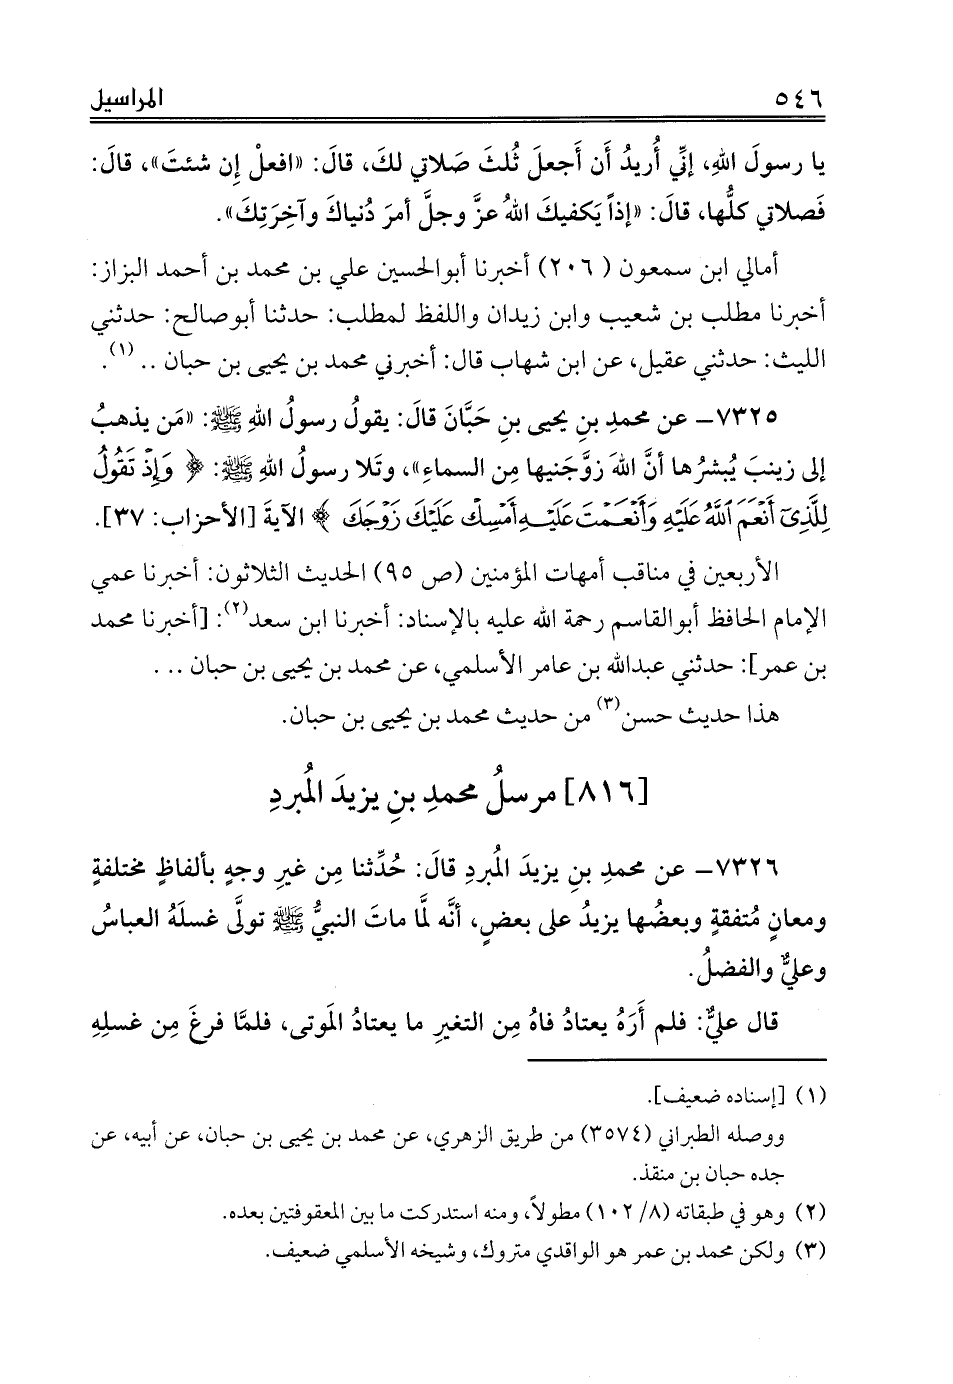 ٥٤٦ المراسيل
يا رسولَ اللهِ، إنِّي أُريدُ أَن أَجعلَ ثُلثَ صَلاتي لكَ، قالَ: «افعلْ إِن شئتَ»، قالَ:
فَصلاتي كلُّها، قالَ: «إذاً يَكفيكَ اللهُ عزَّ وجلَّ أمرَ دُنياكَ وآخِرَتِكَ».
أمالي ابن سمعون (٢٠٦) أخبرنا أبوالحسين علي بن محمد بن أحمد البزاز:
أخبرنا مطلب بن شعيب وابن زيدان واللفظ لمطلب: حدثنا أبوصالح: حدثني
الليث: حدثني عقيل، عن ابن شهاب قال: أخبرني محمد بن يحيى بن حبان .. (١).
٧٣٢٥– عن محمدِ بنِ يحيى بنِ حَبَّانَ قالَ: يقولُ رسولُ اللهِ ﷺ: «مَن يذهبُ
إلى زينبَ يُبشرُها أنَّ اللهَ زوَّجَنيها مِن السماءِ»، وتَلا رسولُ اللهِ ﷺ: ﴿ وَإِذْ تَقُولُ
لِلَّذِىٓ أَنْعَمَ ٱللَّهُ عَلَيْهِ وَأَنْعَمْتَ عَلَيْهِ أَمْسِكْ عَلَيْكَ زَوْجَكَ ﴾ الآيةَ [الأحزاب: ٣٧].
الأربعين في مناقب أمهات المؤمنين (ص ٩٥) الحديث الثلاثون: أخبرنا عمي
الإمام الحافظ أبوالقاسم رحمة الله عليه بالإسناد: أخبرنا ابن سعد(٢): [أخبرنا محمد
بن عمر]: حدثني عبدالله بن عامر الأسلمي، عن محمد بن يحيى بن حبان ...
هذا حديث حسن(٣) من حديث محمد بن يحيى بن حبان.
[٨١٦] مرسلُ محمدِ بنِ يزيدَ المُبردِ
٧٣٢٦– عن محمدِ بنِ يزيدَ المُبردِ قالَ: حُدِّثنا مِن غيرِ وجهٍ بألفاظٍ مختلفةٍ
ومعانٍ مُتفقةٍ وبعضُها يزيدُ على بعضٍ، أنَّه لمَّا ماتَ النبيُّ ﷺ تولَّى غسلَهُ العباسُ
وعليٌّ والفضلُ.
قال عليٌّ: فلم أَرَهُ يعتادُ فاهُ مِن التغيرِ ما يعتادُ المَوتى، فلمَّا فرغَ مِن غسلِهِ
(١) [إسناده ضعيف].
ووصله الطبراني (٣٥٧٤) من طريق الزهري، عن محمد بن يحيى بن حبان، عن أبيه، عن
جده حبان بن منقذ.
(٢) وهو في طبقاته (٨/ ١٠٢) مطولاً، ومنه استدركت ما بين المعقوفتين بعده.
(٣) ولكن محمد بن عمر هو الواقدي متروك، وشيخه الأسلمي ضعيف.